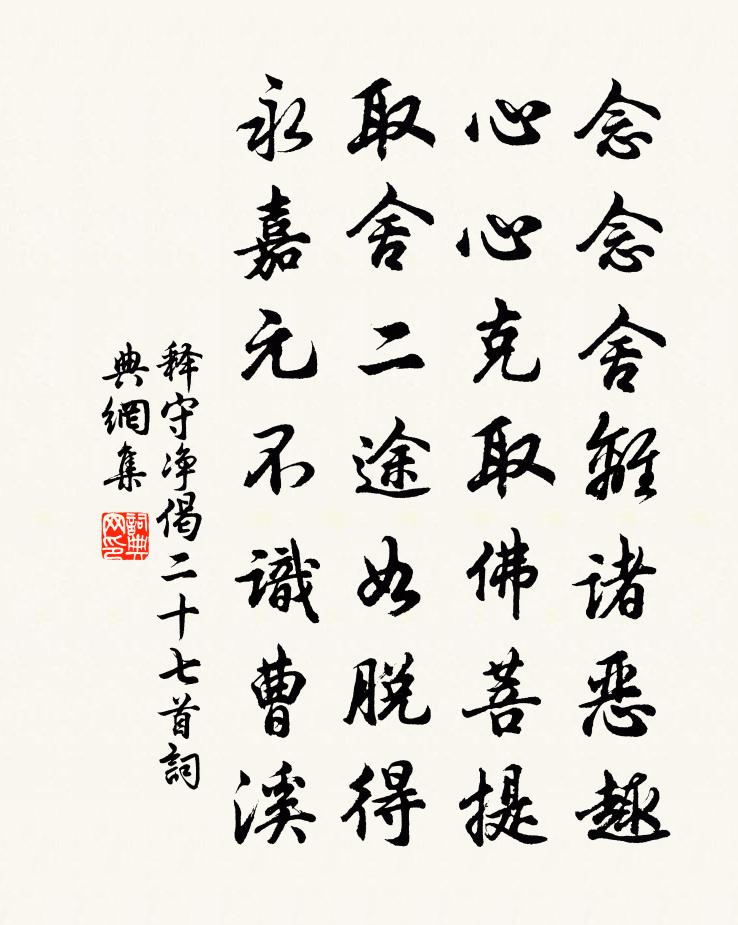 念念舍離諸惡趣
心心克取佛菩提
取舍二途如脱得
永嘉元不識曹溪
释守净偈二十七首詞
典網集
詞典
网印